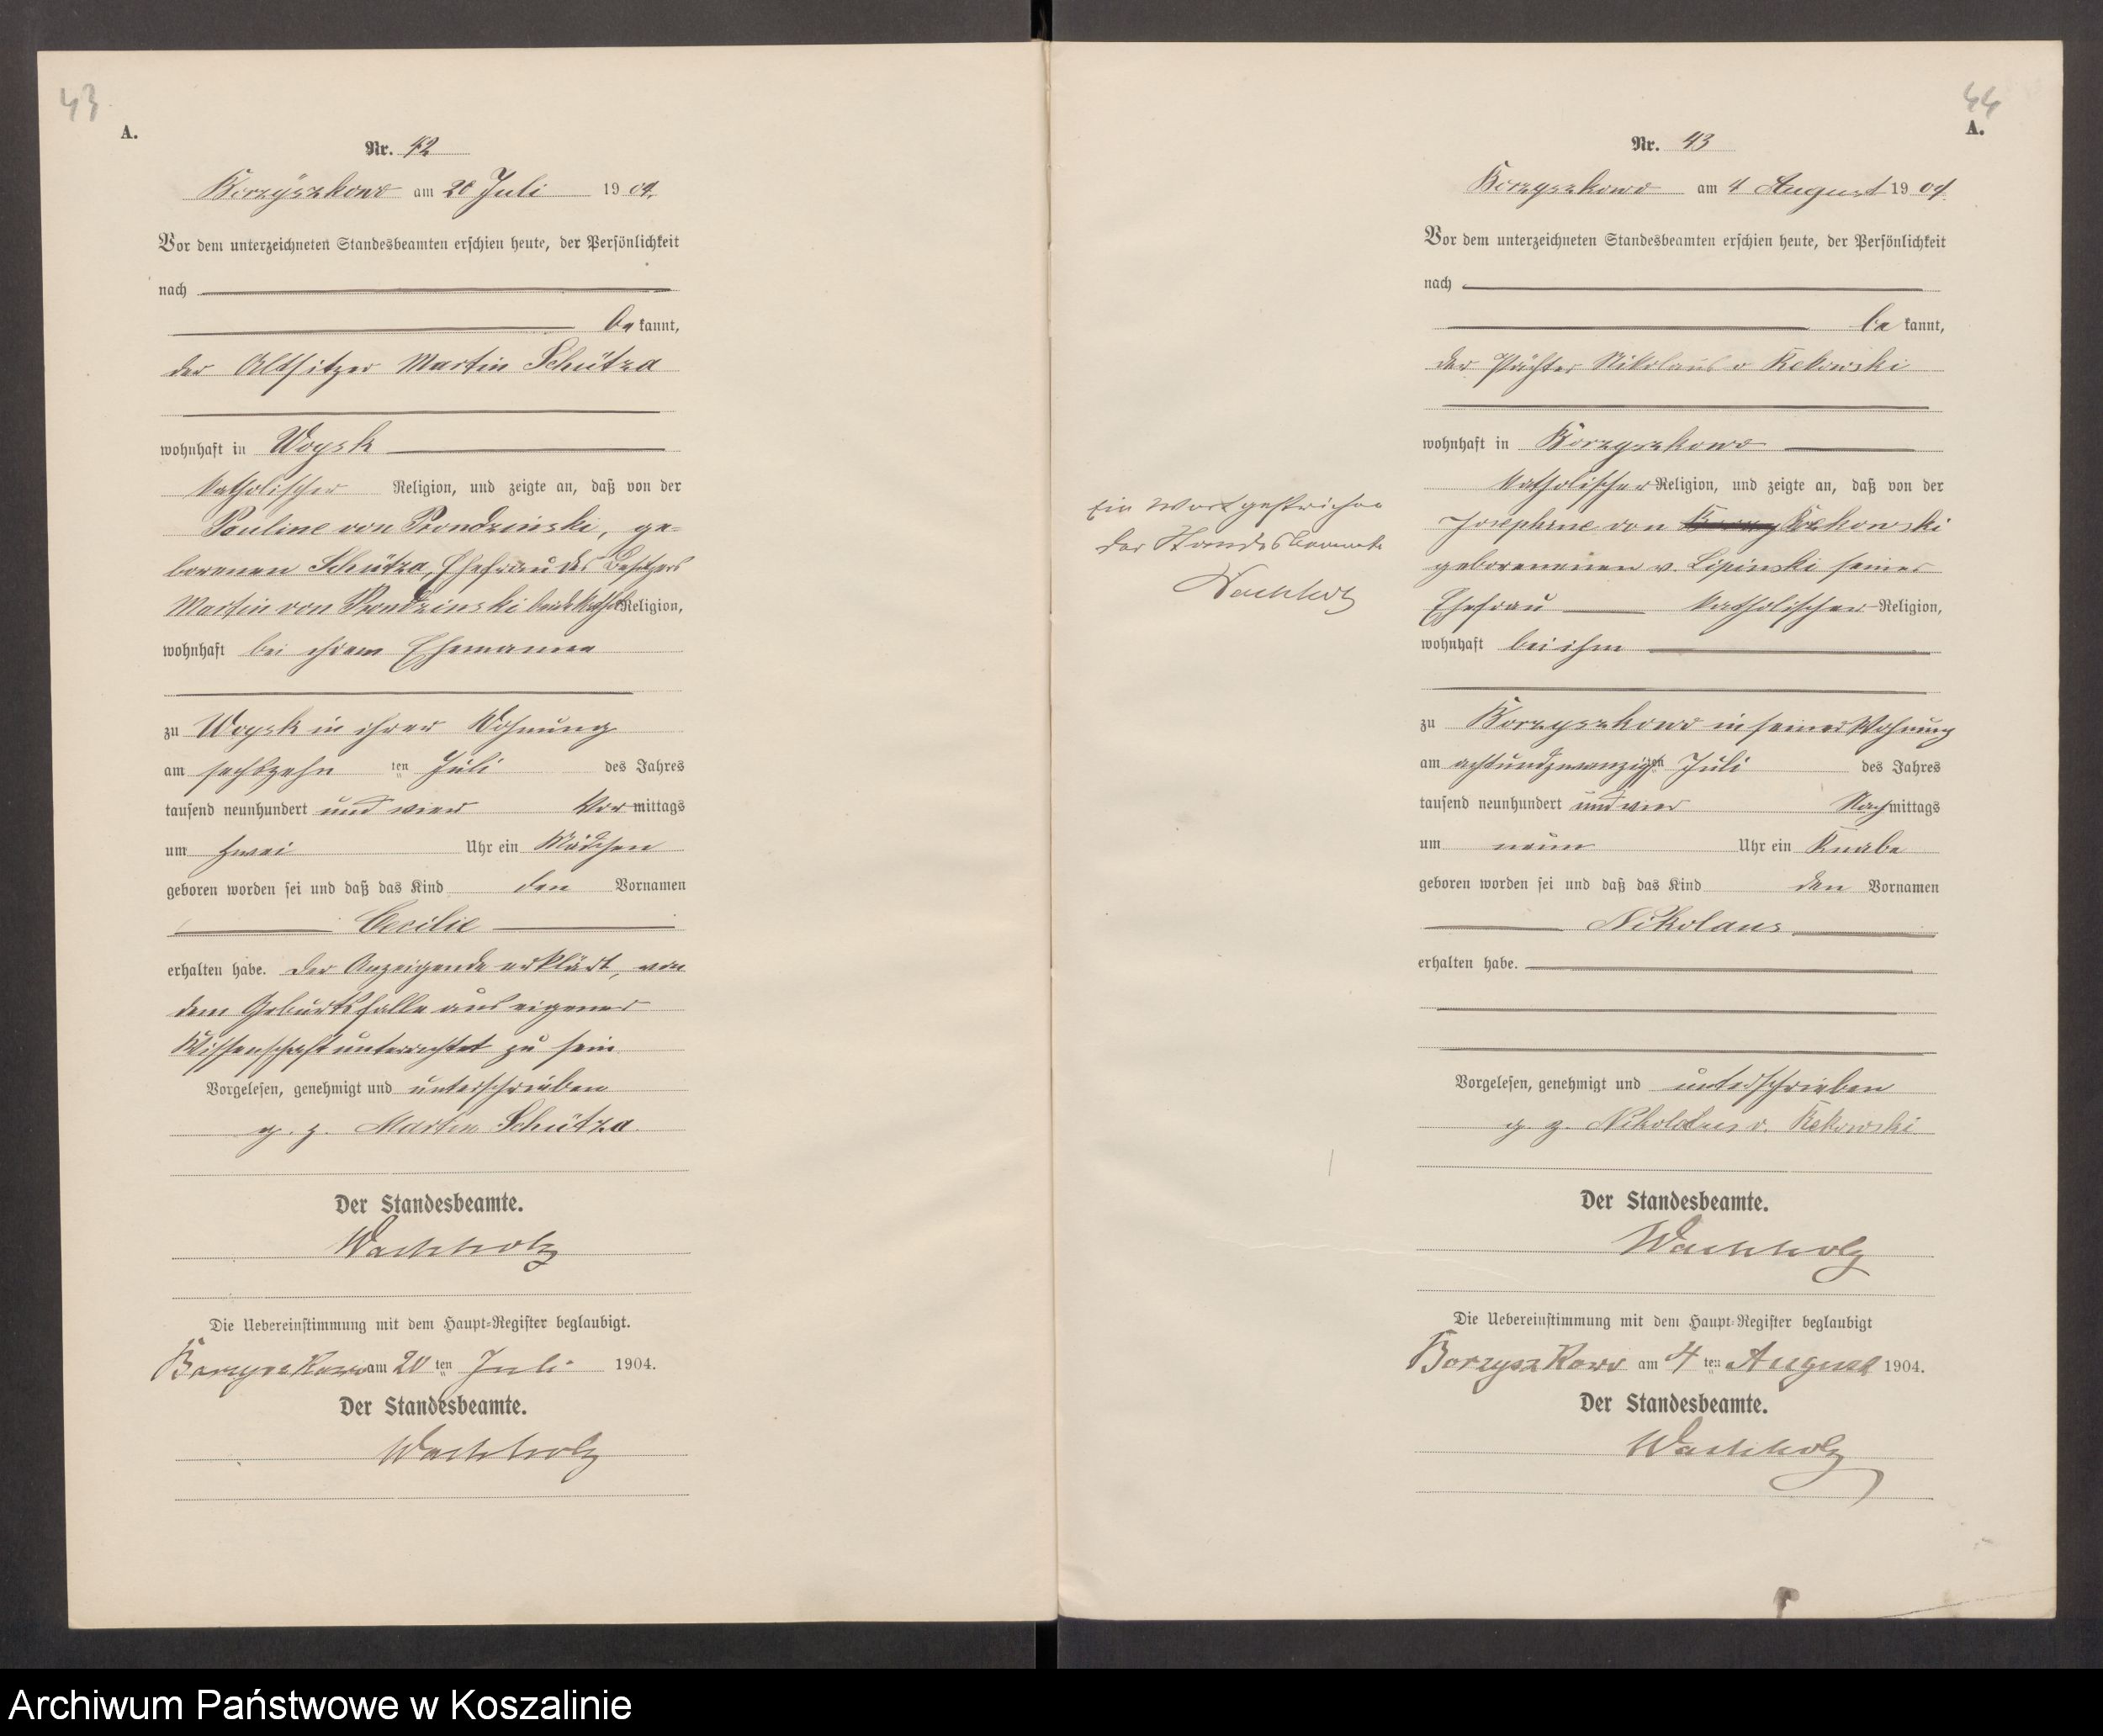 43
A.
Nr. 42
Borzyszkowo am 20 Juli 1904.
Vor dem unterzeichneten Standesbeamten erschien heute, der Persönlichkeit
nach
be kannt,
der Altsitzer Martin Schütza
wohnhaft in Woysk
katholischer Religion, und zeigte an, daß von der
Pauline von Prondzinski, ge-
borenen Schütza, Ehefrau des Besitzers
Martin von Prondzinski beide kathol. Religion,
wohnhaft bei ihrem Ehemanne
zu Woysk in ihrer Wohnung
am sechszehn ten Juli des Jahres
tausend neunhundert und vier Vor mittags
um zwei Uhr ein Mädchen
geboren worden sei und daß das Kind den Vornamen
Cecilie
erhalten habe. Der Anzeigende erklärt, von
dem Geburtsfalle aus eigener
Wissenschaft unterrichtet zu sein
Vorgelesen, genehmigt und unterschrieben
g. z. Martin Schütza.
Der Standesbeamte.
Wachholz
Die Uebereinstimmung mit dem Haupt-Register beglaubigt.
Borzyszkowo am 20 ten Juli 1904.
Der Standesbeamte.
Wachholz
44
A.
Nr. 43
Borzyszkowo am 4 August 1904.
Vor dem unterzeichneten Standesbeamten erschien heute, der Persönlichkeit
nach
be kannt,
der Pächter Nikolaus v Rekowski
wohnhaft in Borzyszkowo
katholischer Religion, und zeigte an, daß von der
Josephine von Rekowski
geborenenen v. Lipinski seiner
Ehefrau katholischer Religion,
wohnhaft bei ihm
zu Borzyszkowo in seiner Wohnung
am achtundzwanzigsten Juli des Jahres
tausend neunhundert und vier Nach mittags
um neun Uhr ein Knabe
geboren worden sei und daß das Kind den Vornamen
Nikolaus
erhalten habe.
Vorgelesen, genehmigt und unterschrieben
g. z. Nikolaus v. Rekowski
Der Standesbeamte.
Wachholz
Die Uebereinstimmung mit dem Haupt-Register beglaubigt
Borzyszkowo am 4 ten August 1904.
Der Standesbeamte.
Wachholz
Ein Wort gestrichen
Der Standesbeamte
Wachholz
Archiwum Państwowe w Koszalinie